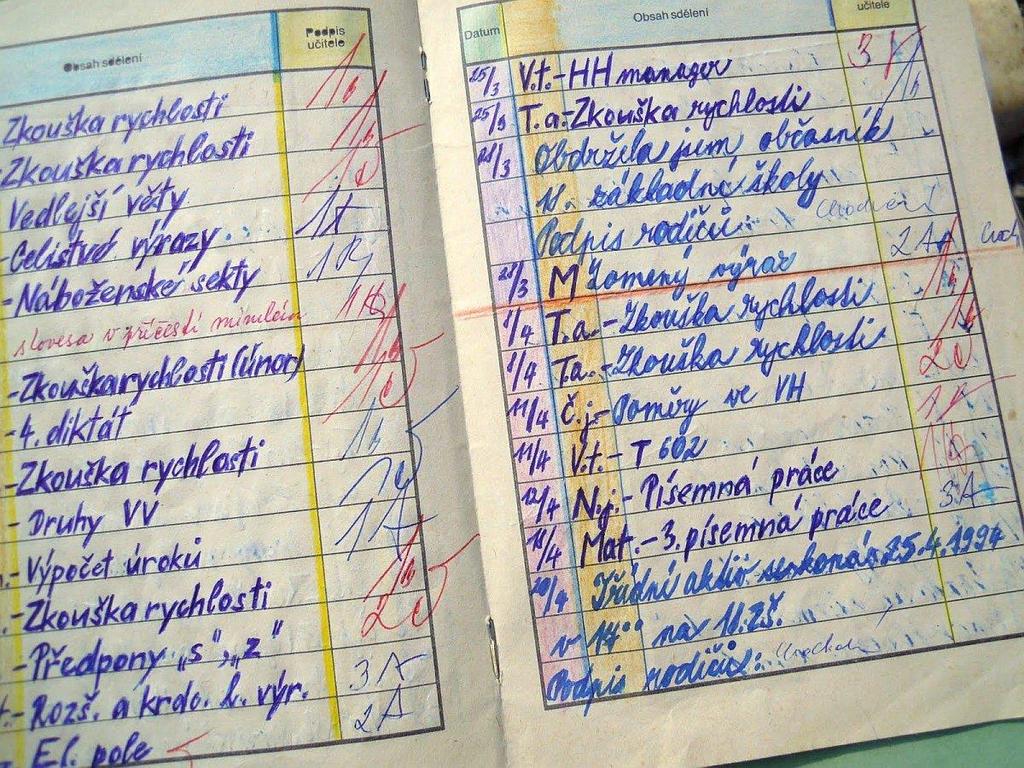 Obsah sdělení Podpis učitele
Zkouška rychlosti 1
Zkouška rychlosti 1
Vedlejší věty 1
- Celistvé výrazy 1
- Náboženské sekty 1
slovesa v příčestí minulém 1
- Zkouška rychlosti (únor) 1
- 4. diktát 1
- Zkouška rychlosti 1
- Druhy VV 1
- Výpočet úroků 1
- Zkouška rychlosti 1
- Předpony „s", „z" 2
- Rozš. a krác. l. výr. 3
El. pole 2
Datum Obsah sdělení učitele
25/3 V.t. - HH manager 3
25/3 T.a. - Zkouška rychlosti 1
Obdržela jsem občasník
11. základní školy
Podpis rodičů:
28/3 M Lomený výraz 2
1/4 T.a. - Zkouška rychlosti 1
1/4 T.a. - Zkouška rychlosti 1
11/4 Č.j. - Poměry ve VH 2
11/4 V.t. - T 602 1
12/4 N.j. - Písemná práce 1
18/4 Mat. - 3. písemná práce 3
20/4 Třídní aktiv se koná 25.4.1994
v 14⁰⁰ na 11. ZŠ.
Podpis rodičů: